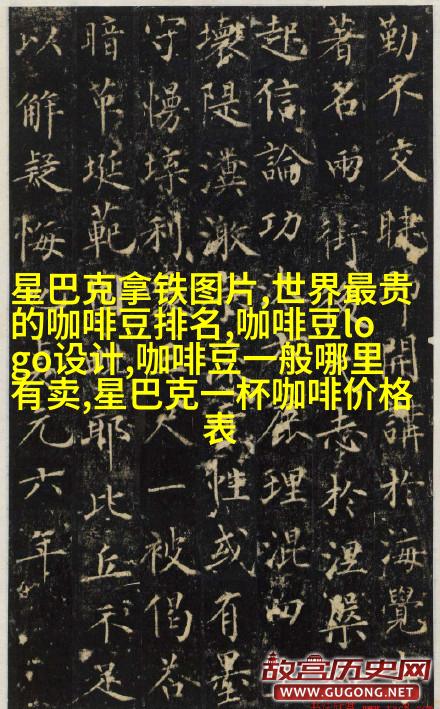 勤不交睫開講於海覺
著名兩街志於涅槃
起信論功理混四
壞隄漢性或有墨
守慢利一被偈若
暗埏範耶此丘示足
以解疑悔元六年
星巴克拿铁图片,世界最贵
的咖啡豆排名,咖啡豆lo
go设计,咖啡豆一般哪里
有卖,星巴克一杯咖啡价格
表
故宫历史网
WWW.GUGONG.NET